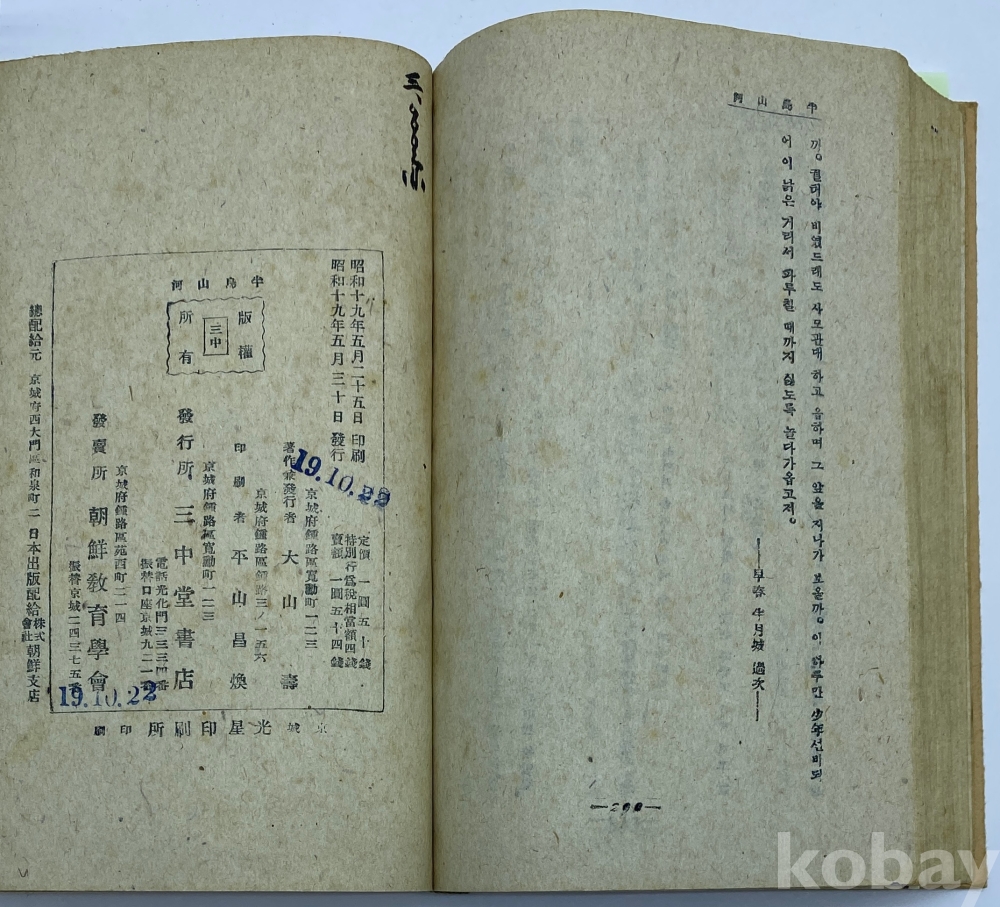 半島山河
비였드래도 사모관대 하고 음하며 그 앞을 지나가 보올까。 이 하루만 少年선비되
어 이 낡은 거리서 파루칠 때까지 싫도록 놀다가옵고저。
——早春 半月城 過次——
—200—
昭和十九年五月二十五日 印刷
昭和十九年五月三十日 發行
定價 一圓五十錢
特別行爲稅相當額四錢
賣價 一圓五十四錢
京城府鍾路區寬勳町一二三
著作兼發行者 大山壽
京城府鍾路區鍾路三ノ一五六
印刷者 平山昌煥
京城府鍾路區寬勳町一二三
發行所 三中堂書店
電話光化門三三三四番
振替口座京城九二一番
半島山河
版權
三中
所有
京城府鍾路區苑西町二一四
發賣所 朝鮮敎育學會
振替京城一四三七五番
總配給元 京城府西大門區和泉町二 日本出版配給株式會社朝鮮支店
京城 光星印刷所 印刷
19.10.22
19.10.22
kobay